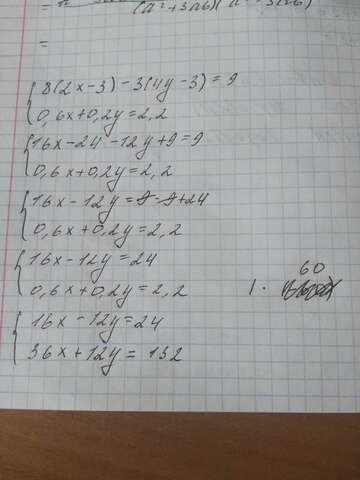 =
=
8(2x-3)-3(4y-3)=9
0,6x+0,2y=2,2
16x-24-12y+9=9
0,6x+0,2y=2,2
16x-12y=9-9+24
0,6x+0,2y=2,2
16x-12y=24
0,6x+0,2y=2,2 | · 60
16x-12y=24
36x+12y=132